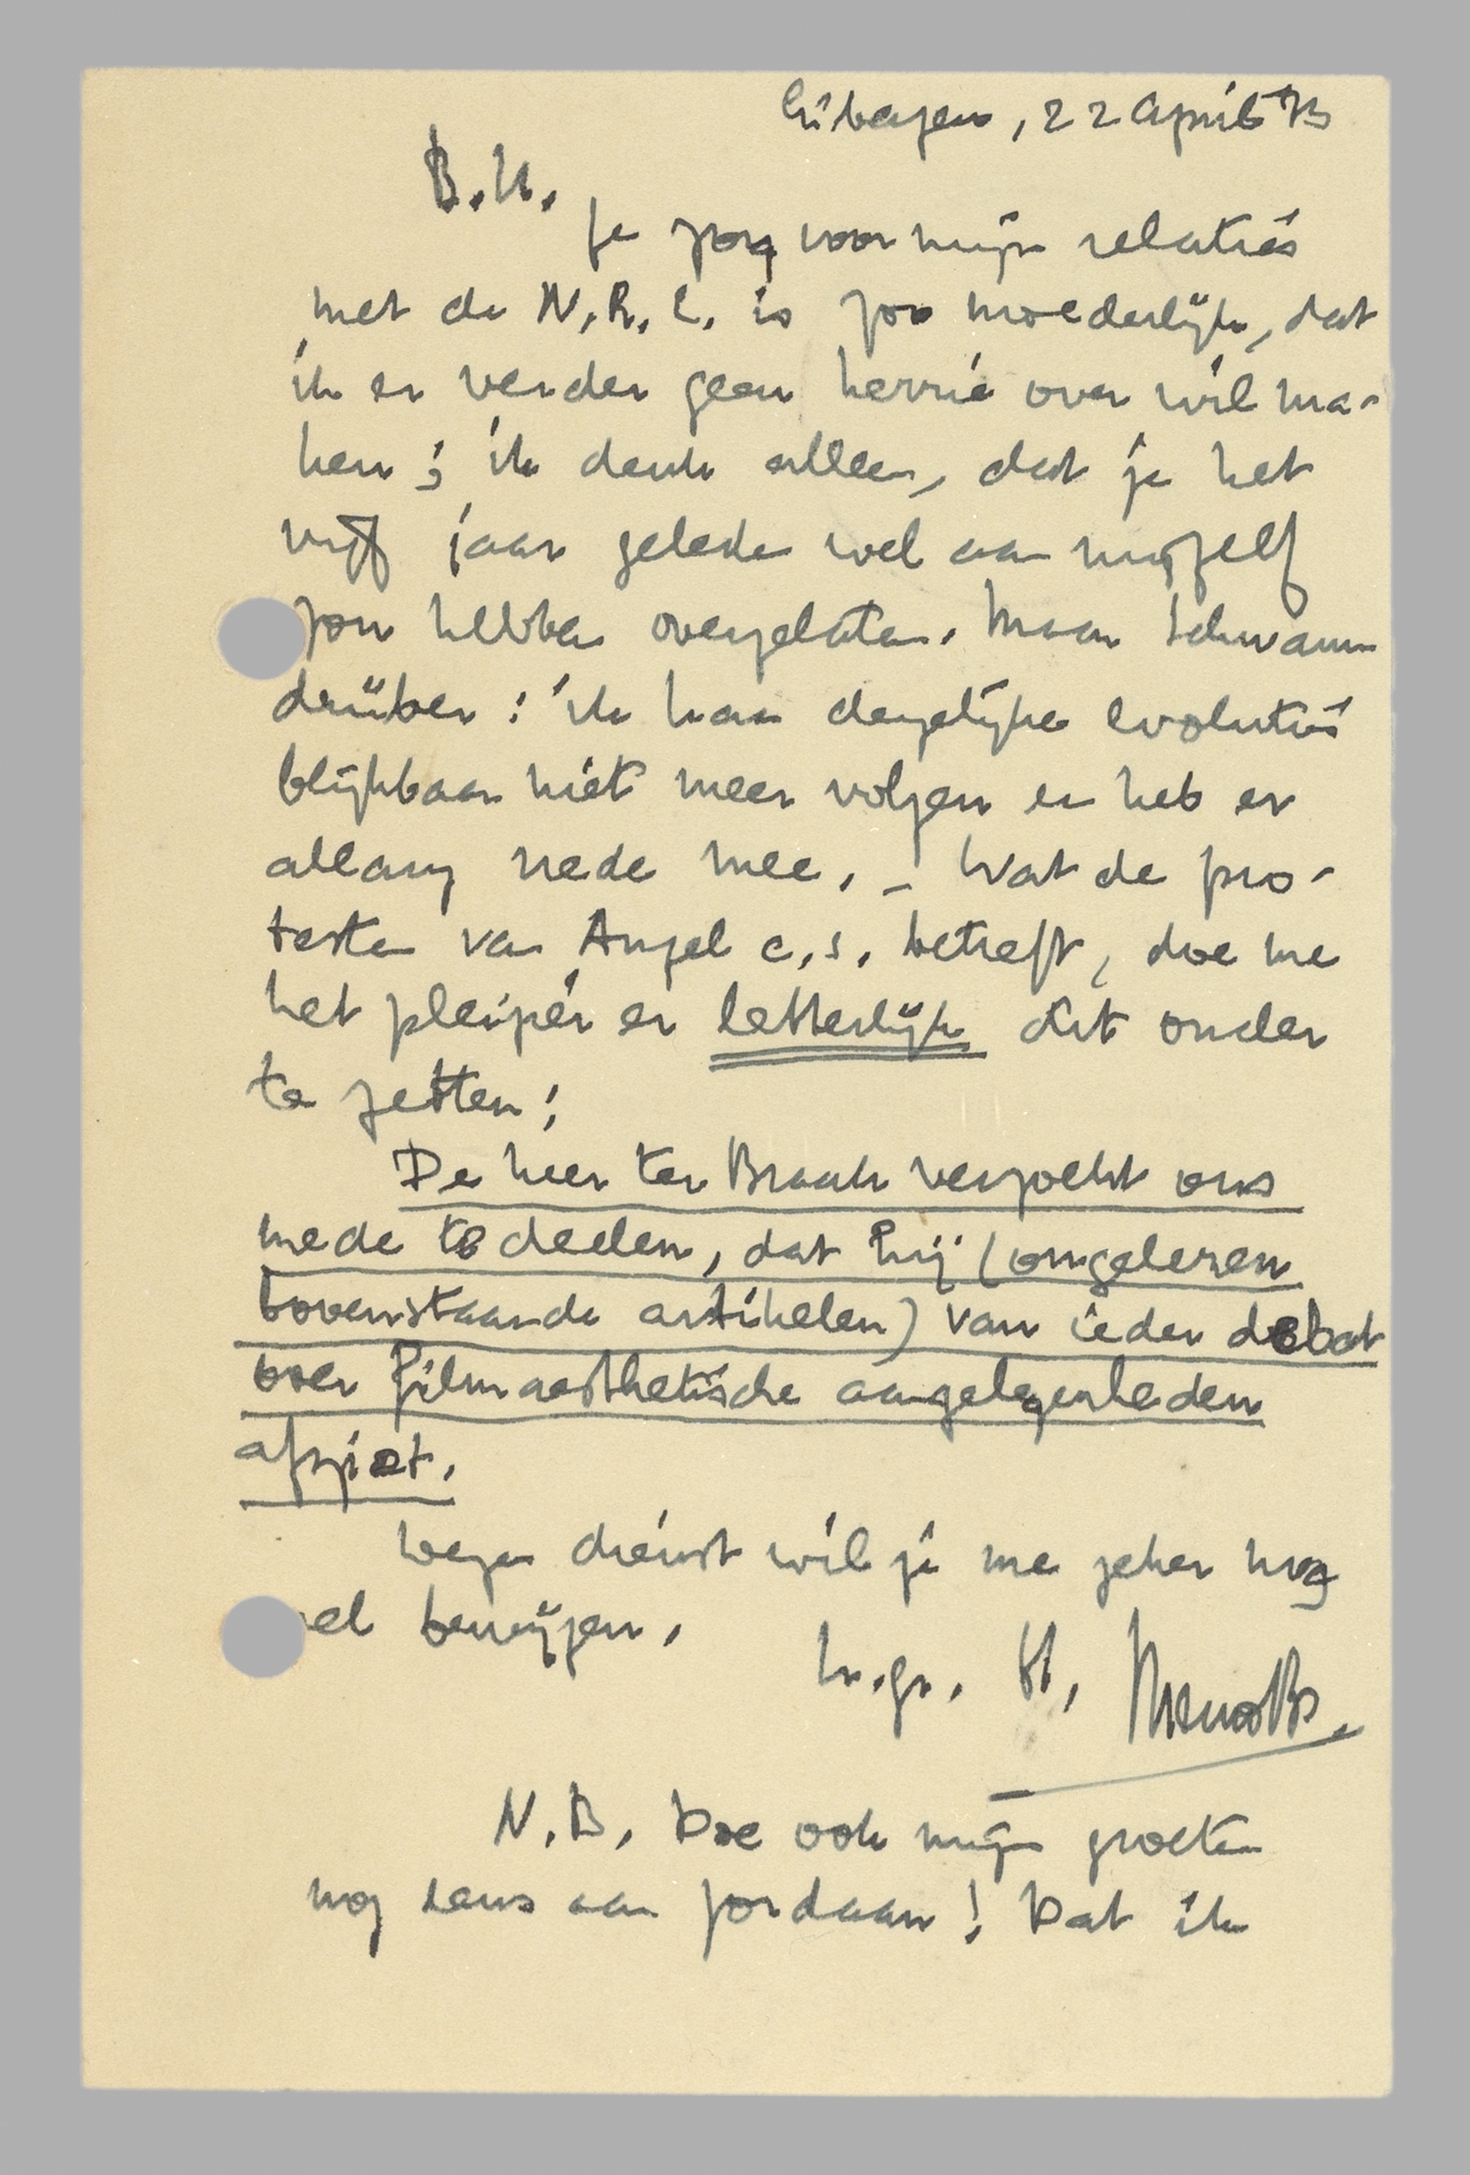 Eibergen, 22 April '33
B.H.
Je zorg voor mijn relaties
met de N.R.C. is zoo moederlijk, dat
ik er verder geen herrie over wil ma-
ken; ik denk alleen, dat je het
vijf jaar geleden wel aan mijzelf
zou hebben overgelaten. Maar Schwamm
drüber: ik kan dergelijke evoluties
blijkbaar niet meer volgen en heb er
allang vrede mee. – Wat de pro-
testen van Angel c.s. betreft, doe me
het pleizier er letterlijk dit onder
te zetten:
De heer ter Braak verzoekt ons
mede te deelen, dat hij (ongelezen
bovenstaande artikelen) van ieder debat
over filmaesthetische aangelegenheden
afziet.
Dezen dienst wil je me zeker nog
wel bewijzen.
m.gr. H. MennotB.
N.B. Doe ook mijn groeten
nog eens aan Jordaan! Dat ik